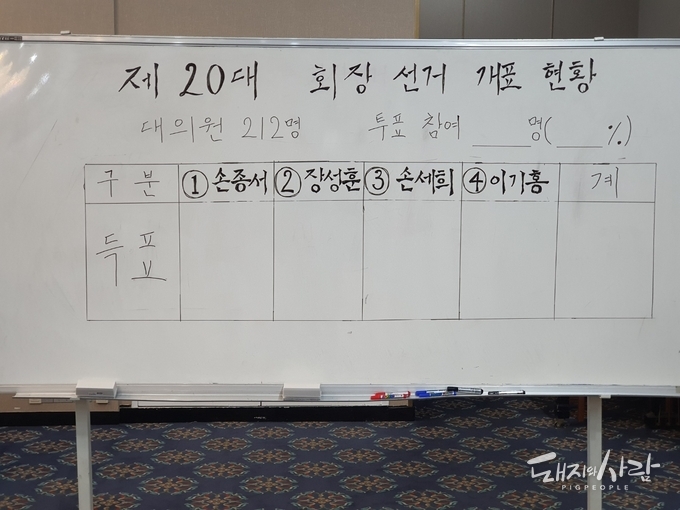 제 20대 회장 선거 개표 현황
대의원 212명 투표 참여 ____명(____%)
구분 ① 손종서 ② 장성훈 ③ 손세희 ④ 이기홍 계
득표
돼지와사람
PIGPEOPLE